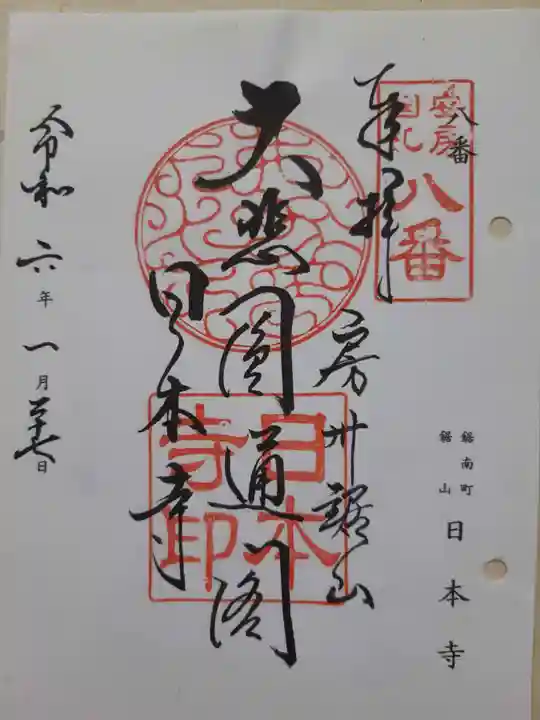 安房
国札
八番
八番
奉拝
房州鋸山
大悲圓通閣
日本寺
日本
寺印
令和六年一月二十七日
鋸南町
鋸山
日本寺